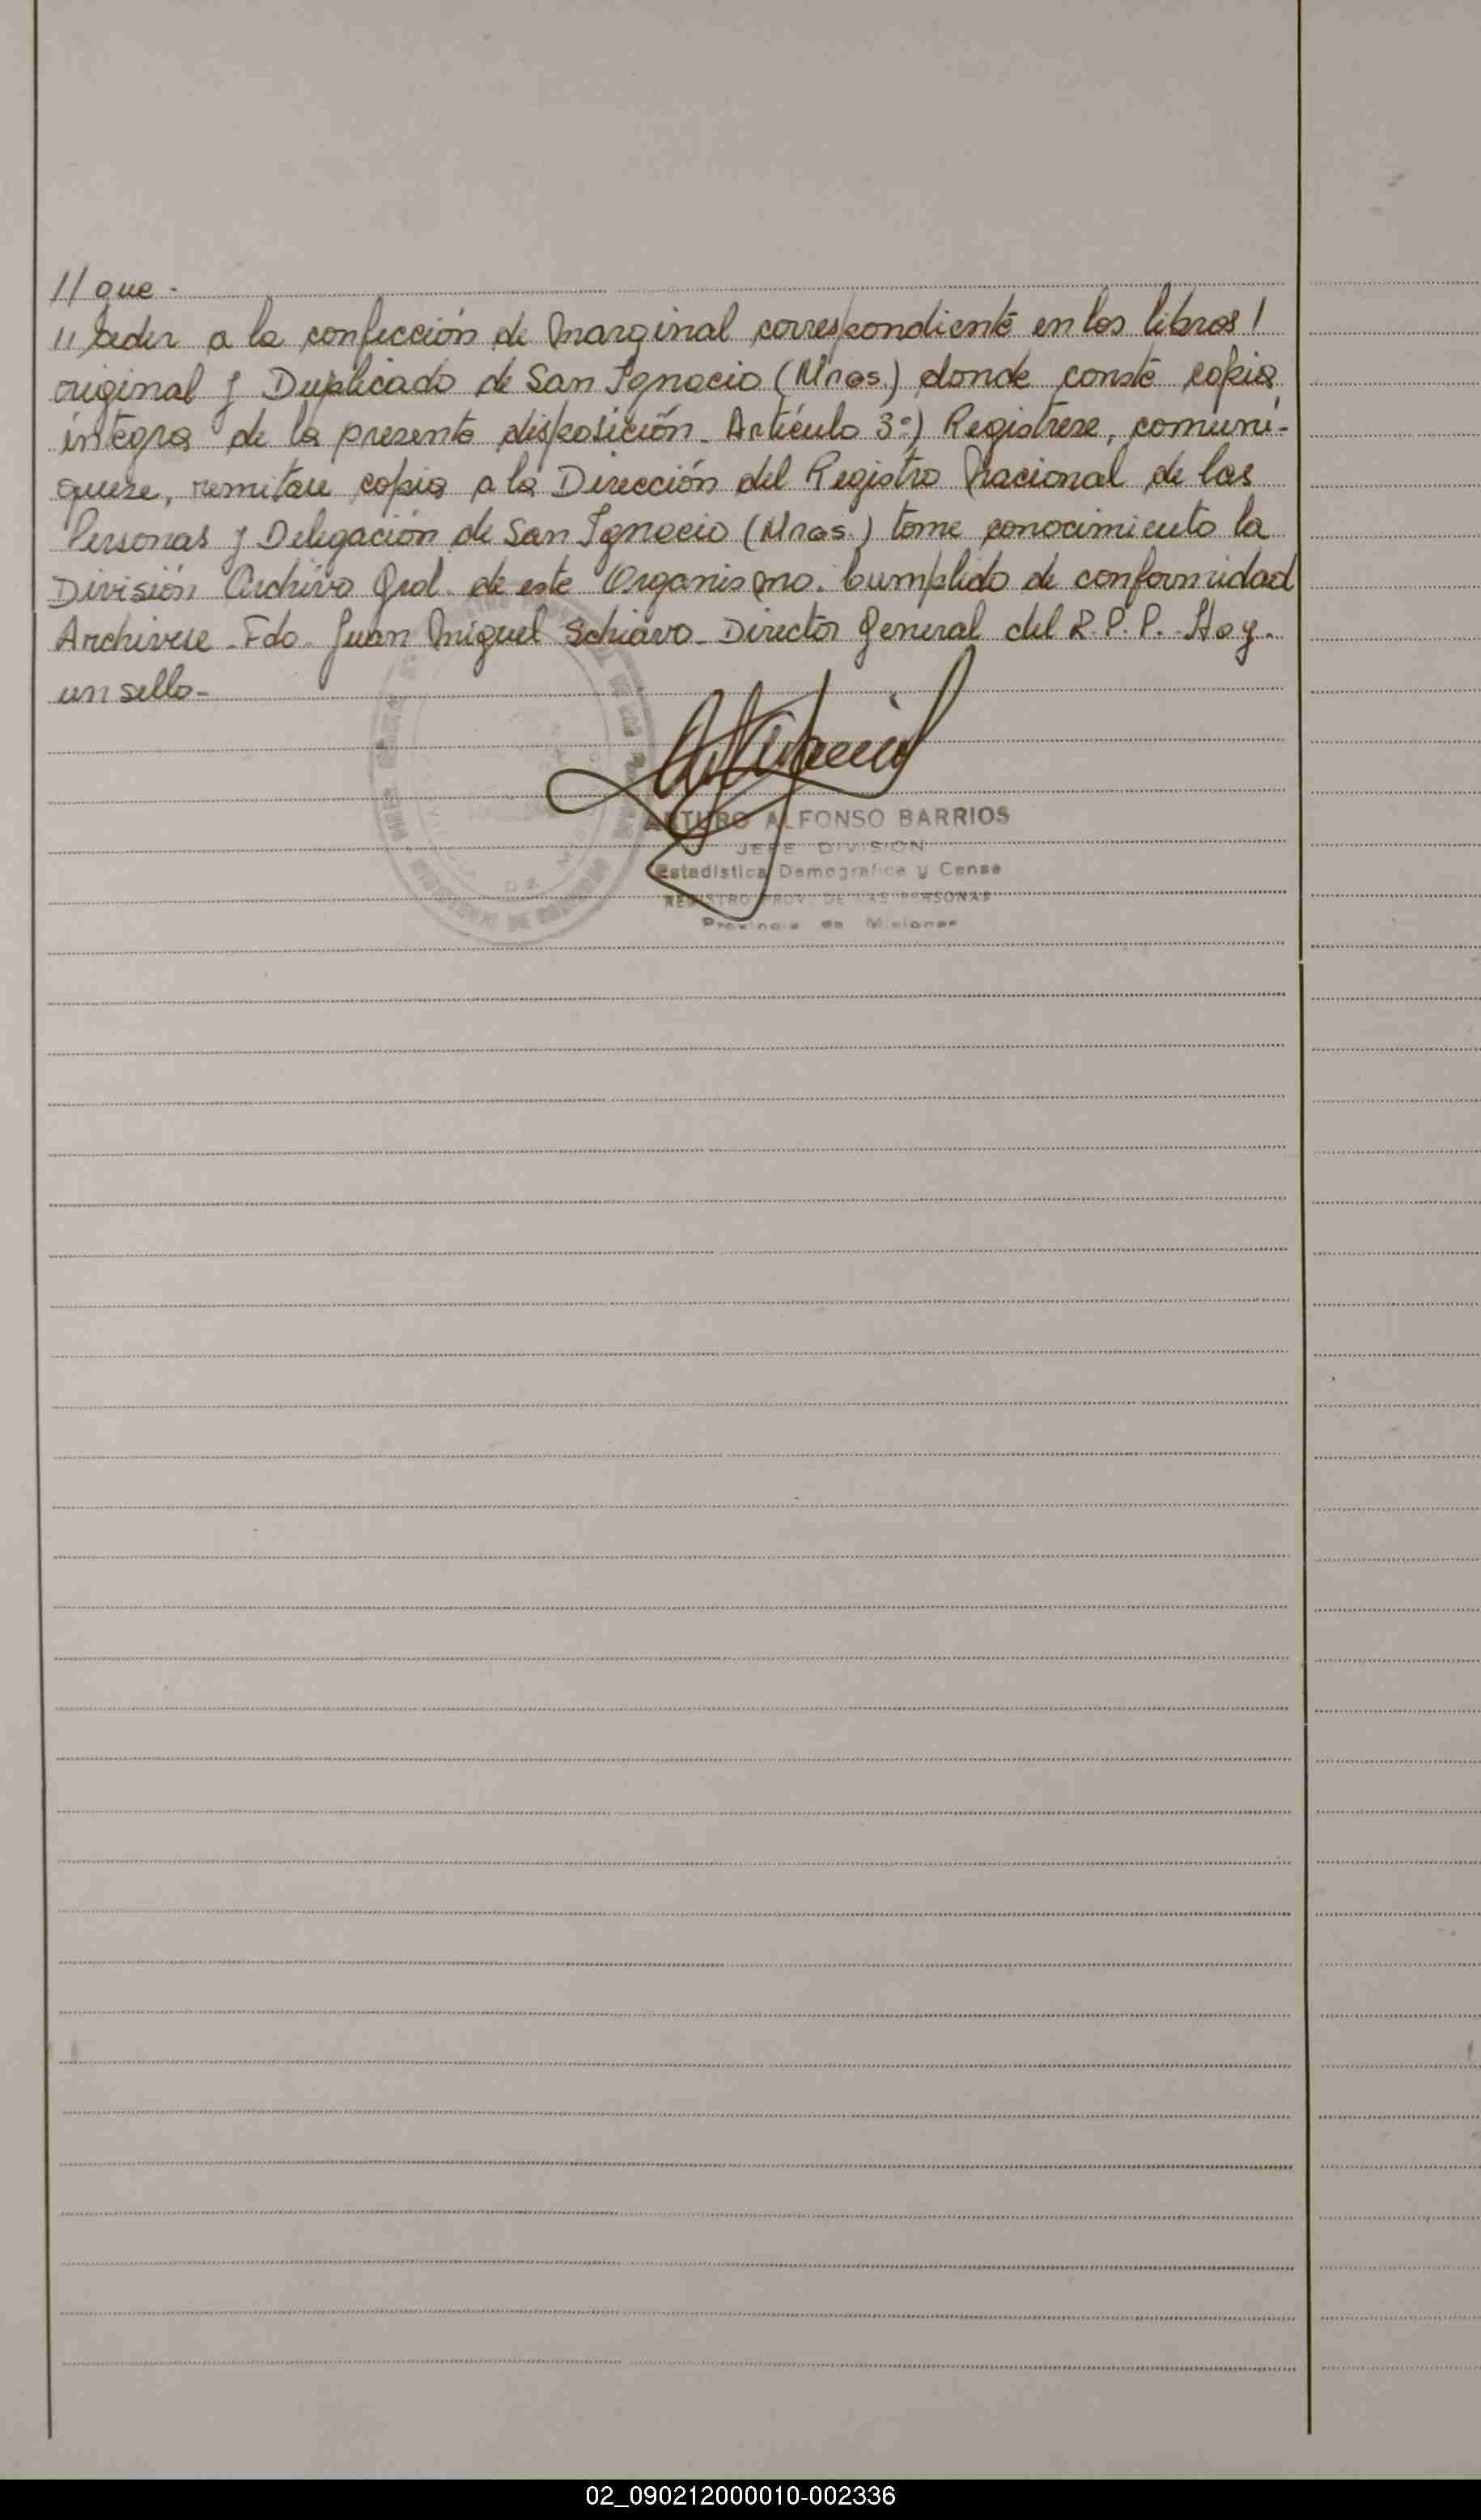 // que -
// ceder a la confección de Marginal correspondiente en los libros /
original y Duplicado de San Ignacio (Mnes.) donde conste copia
íntegra de la presente disposición - Artículo 3º) Regístrese, comuní-
quese, remitase copia a la Dirección del Registro Nacional de las
Personas y Delegación de San Ignacio (Mnes.) tome conocimiento la
División Archivo Gral. de este Organismo. Cumplido de conformidad
Archivese - Fdo. Juan Miguel Schiavo - Director General del R.P.P. - Hay -
un sello -
ARTURO ALFONSO BARRIOS
JEFE DIVISION
Estadistica Demografica y Censo
REGISTRO PROV. DE LAS PERSONAS
Provincia de Misiones
02_090212000010-002336